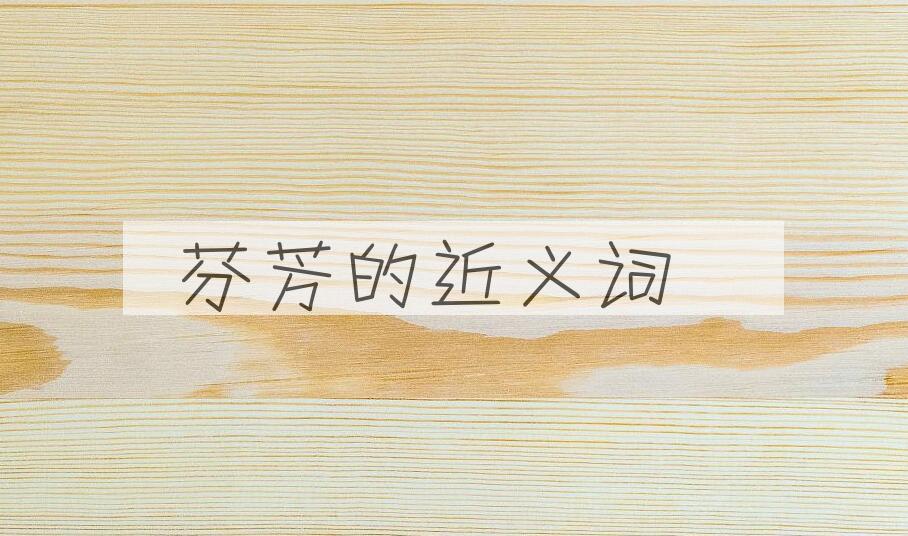 芬芳的近义词